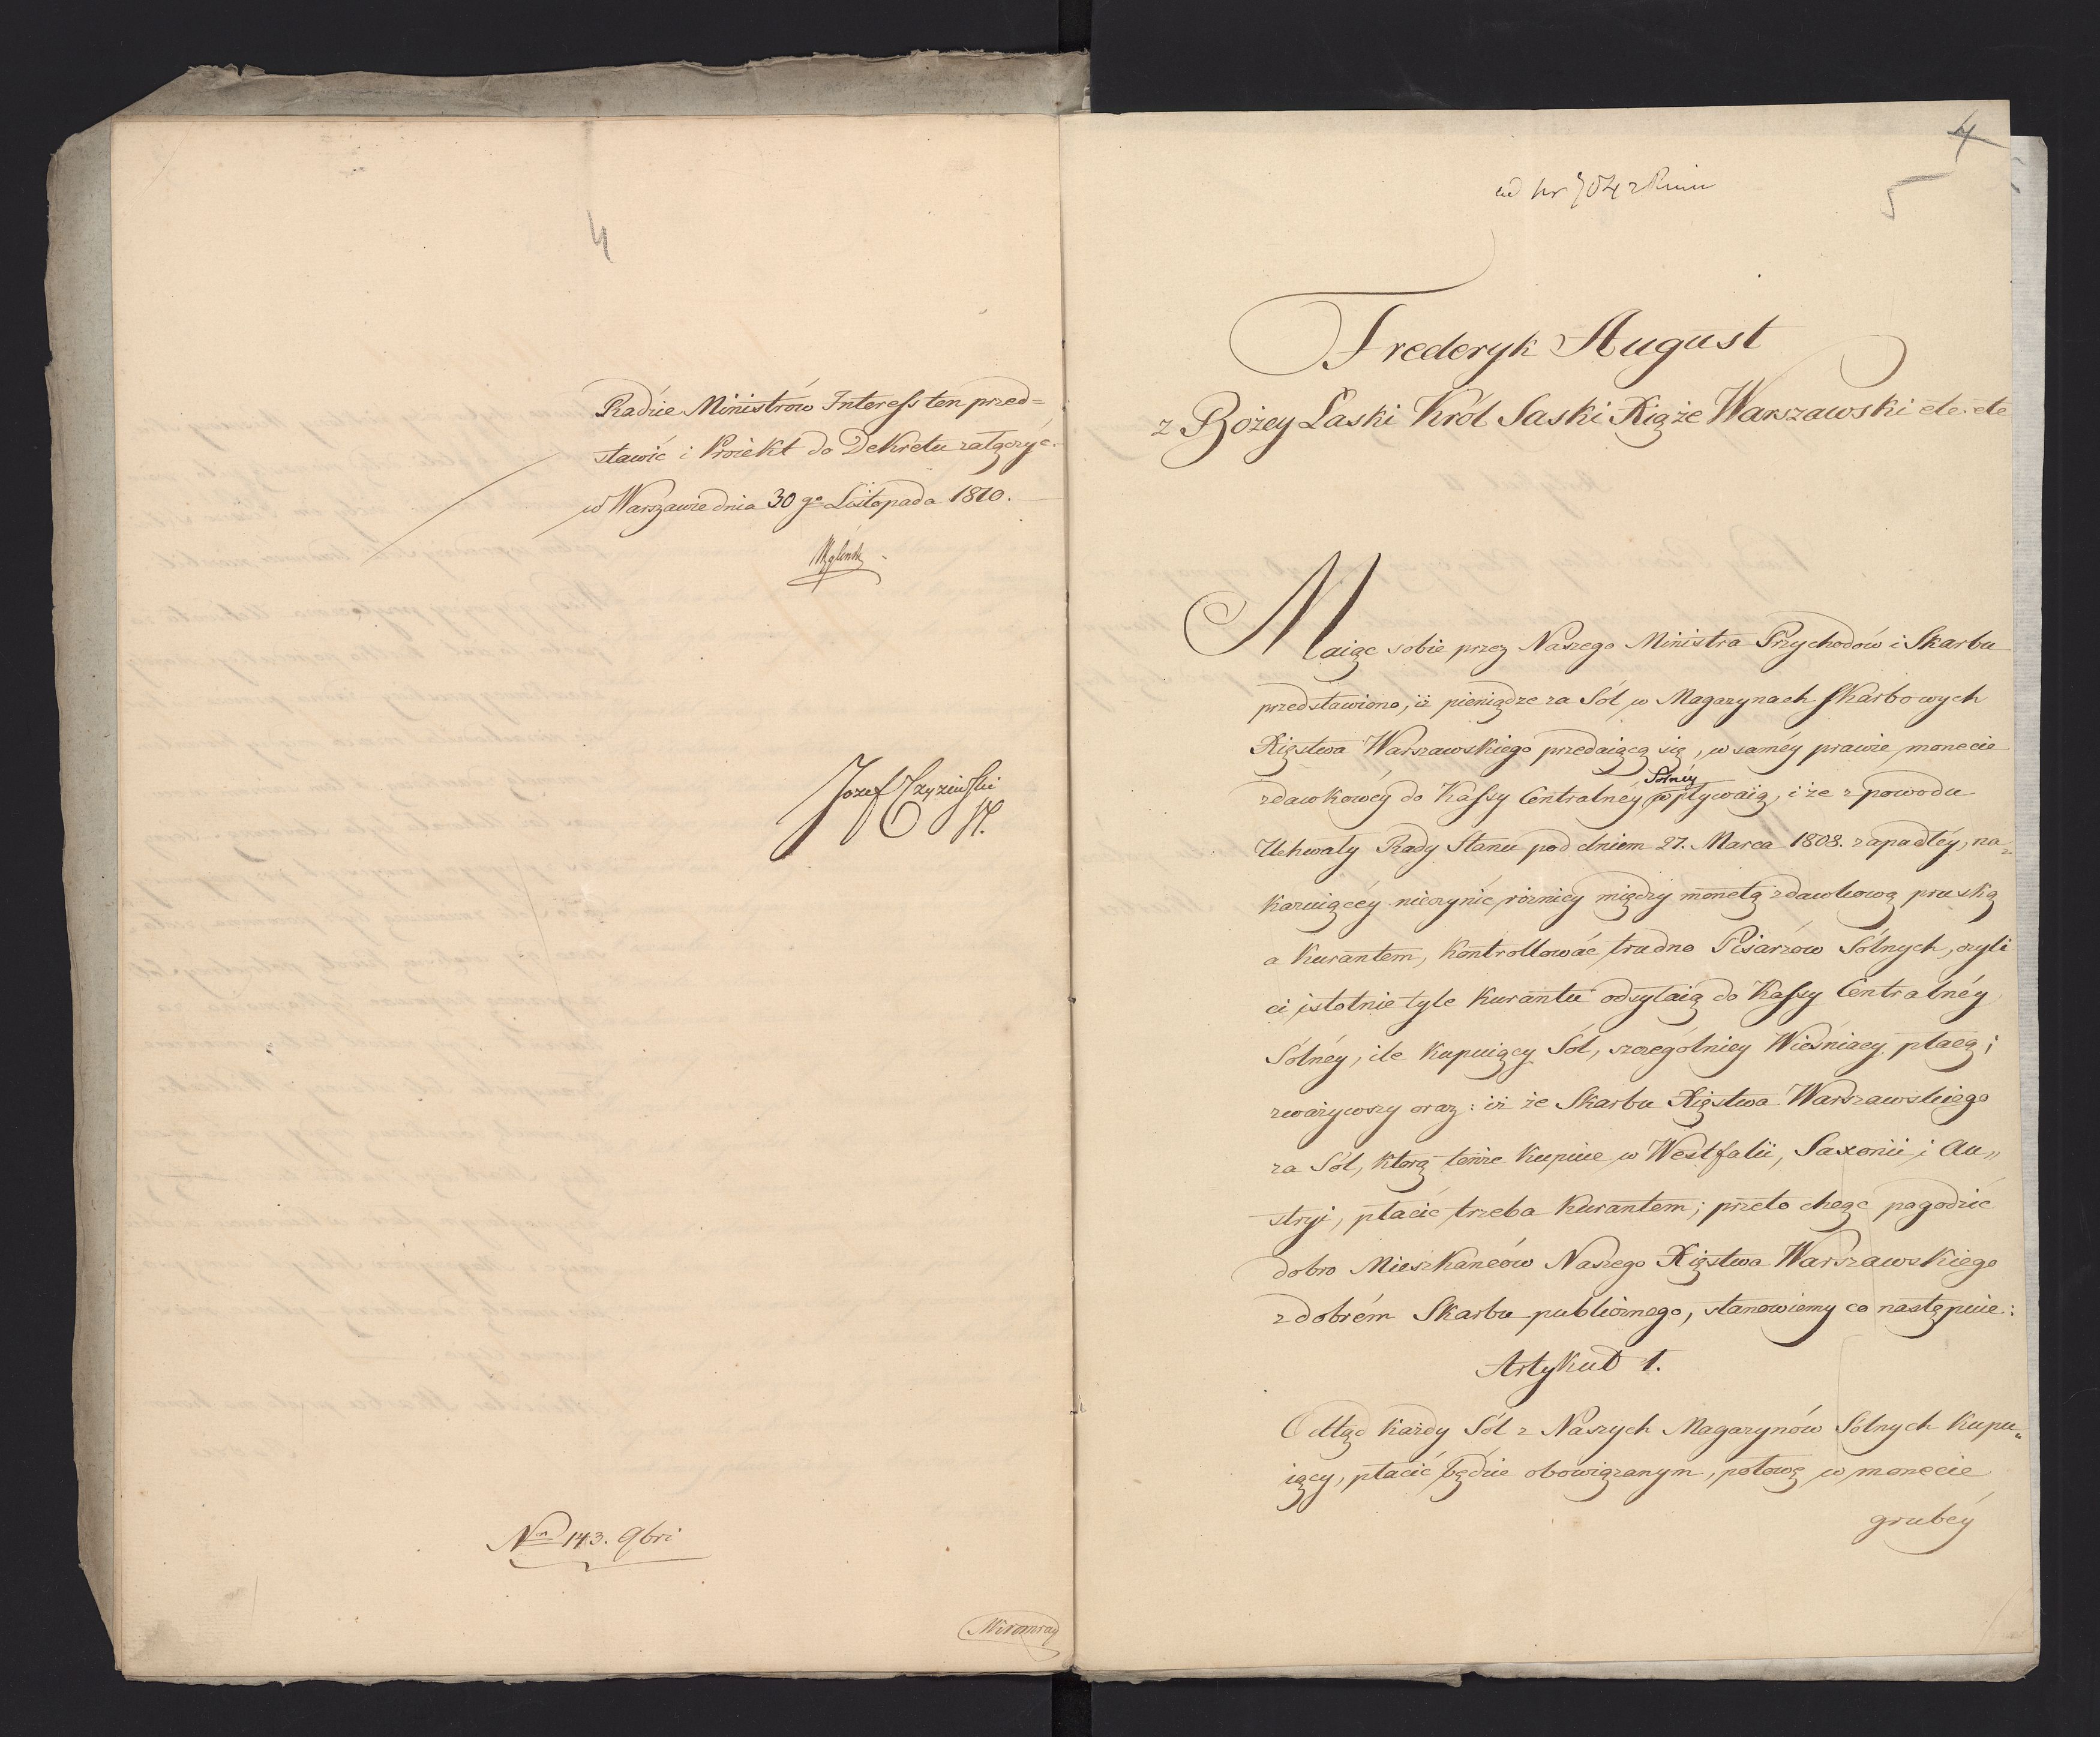 4
Radzie Ministrów Interess ten przed=
stawić i Proiekt do Dekretu załączyć.
w Warszawie dnia 30go Listopada 1810.
Józef
Nro 143. 9bri
4
5
ad Nr 704
Frederyk August
z Bożey Łaski Król Saski Xiąże Warszawski etc. etc
Maiąc sobie przez Naszego Ministra Przychodów i Skarbu
przedstawiono, iż pieniądze za Sól w Magazynach Skarbowych
Xięstwa Warszawskiego przedaiącą się, w saméy prawie monecie
zdawkowéy do Kassy Centralnéy Solnéy wpływaią, i że z powodu
Uchwały Rady Stanu pod dniem 27. Marca 1808. zapadłéy, na-
kazuiącéy nieczynić różnicy między monetą zdawkową pruską
a Kurantem, Kontrollować trudno Pisarzów Sólnych, czyli
ci istotnie tyle Kurantu odsyłaią do Kassy Centralnéy
Sólnéy, ile Kupuiący Sól, szczególniey Wieśniacy płacą;
zważywszy oraz: iż ze Skarbu Xięstwa Warszawskiego
za Sól, którą tenże Kupuie w Westfalii, Saxonii i Au„
stryi, płacić trzeba Kurantem; przeto chcąc pogodzić
dobro Mieszkańców Naszego Xięstwa Warszawskiego
z dobrém Skarbu publicznego, stanowiemy co następuie:
Artykuł 1.
Odtąd każdy Sól z Naszych Magazynów Sólnych Kupu„
iący, płacić będzie obowiązanym, połowę w monecie
grubéy